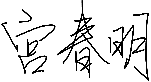 宫春明